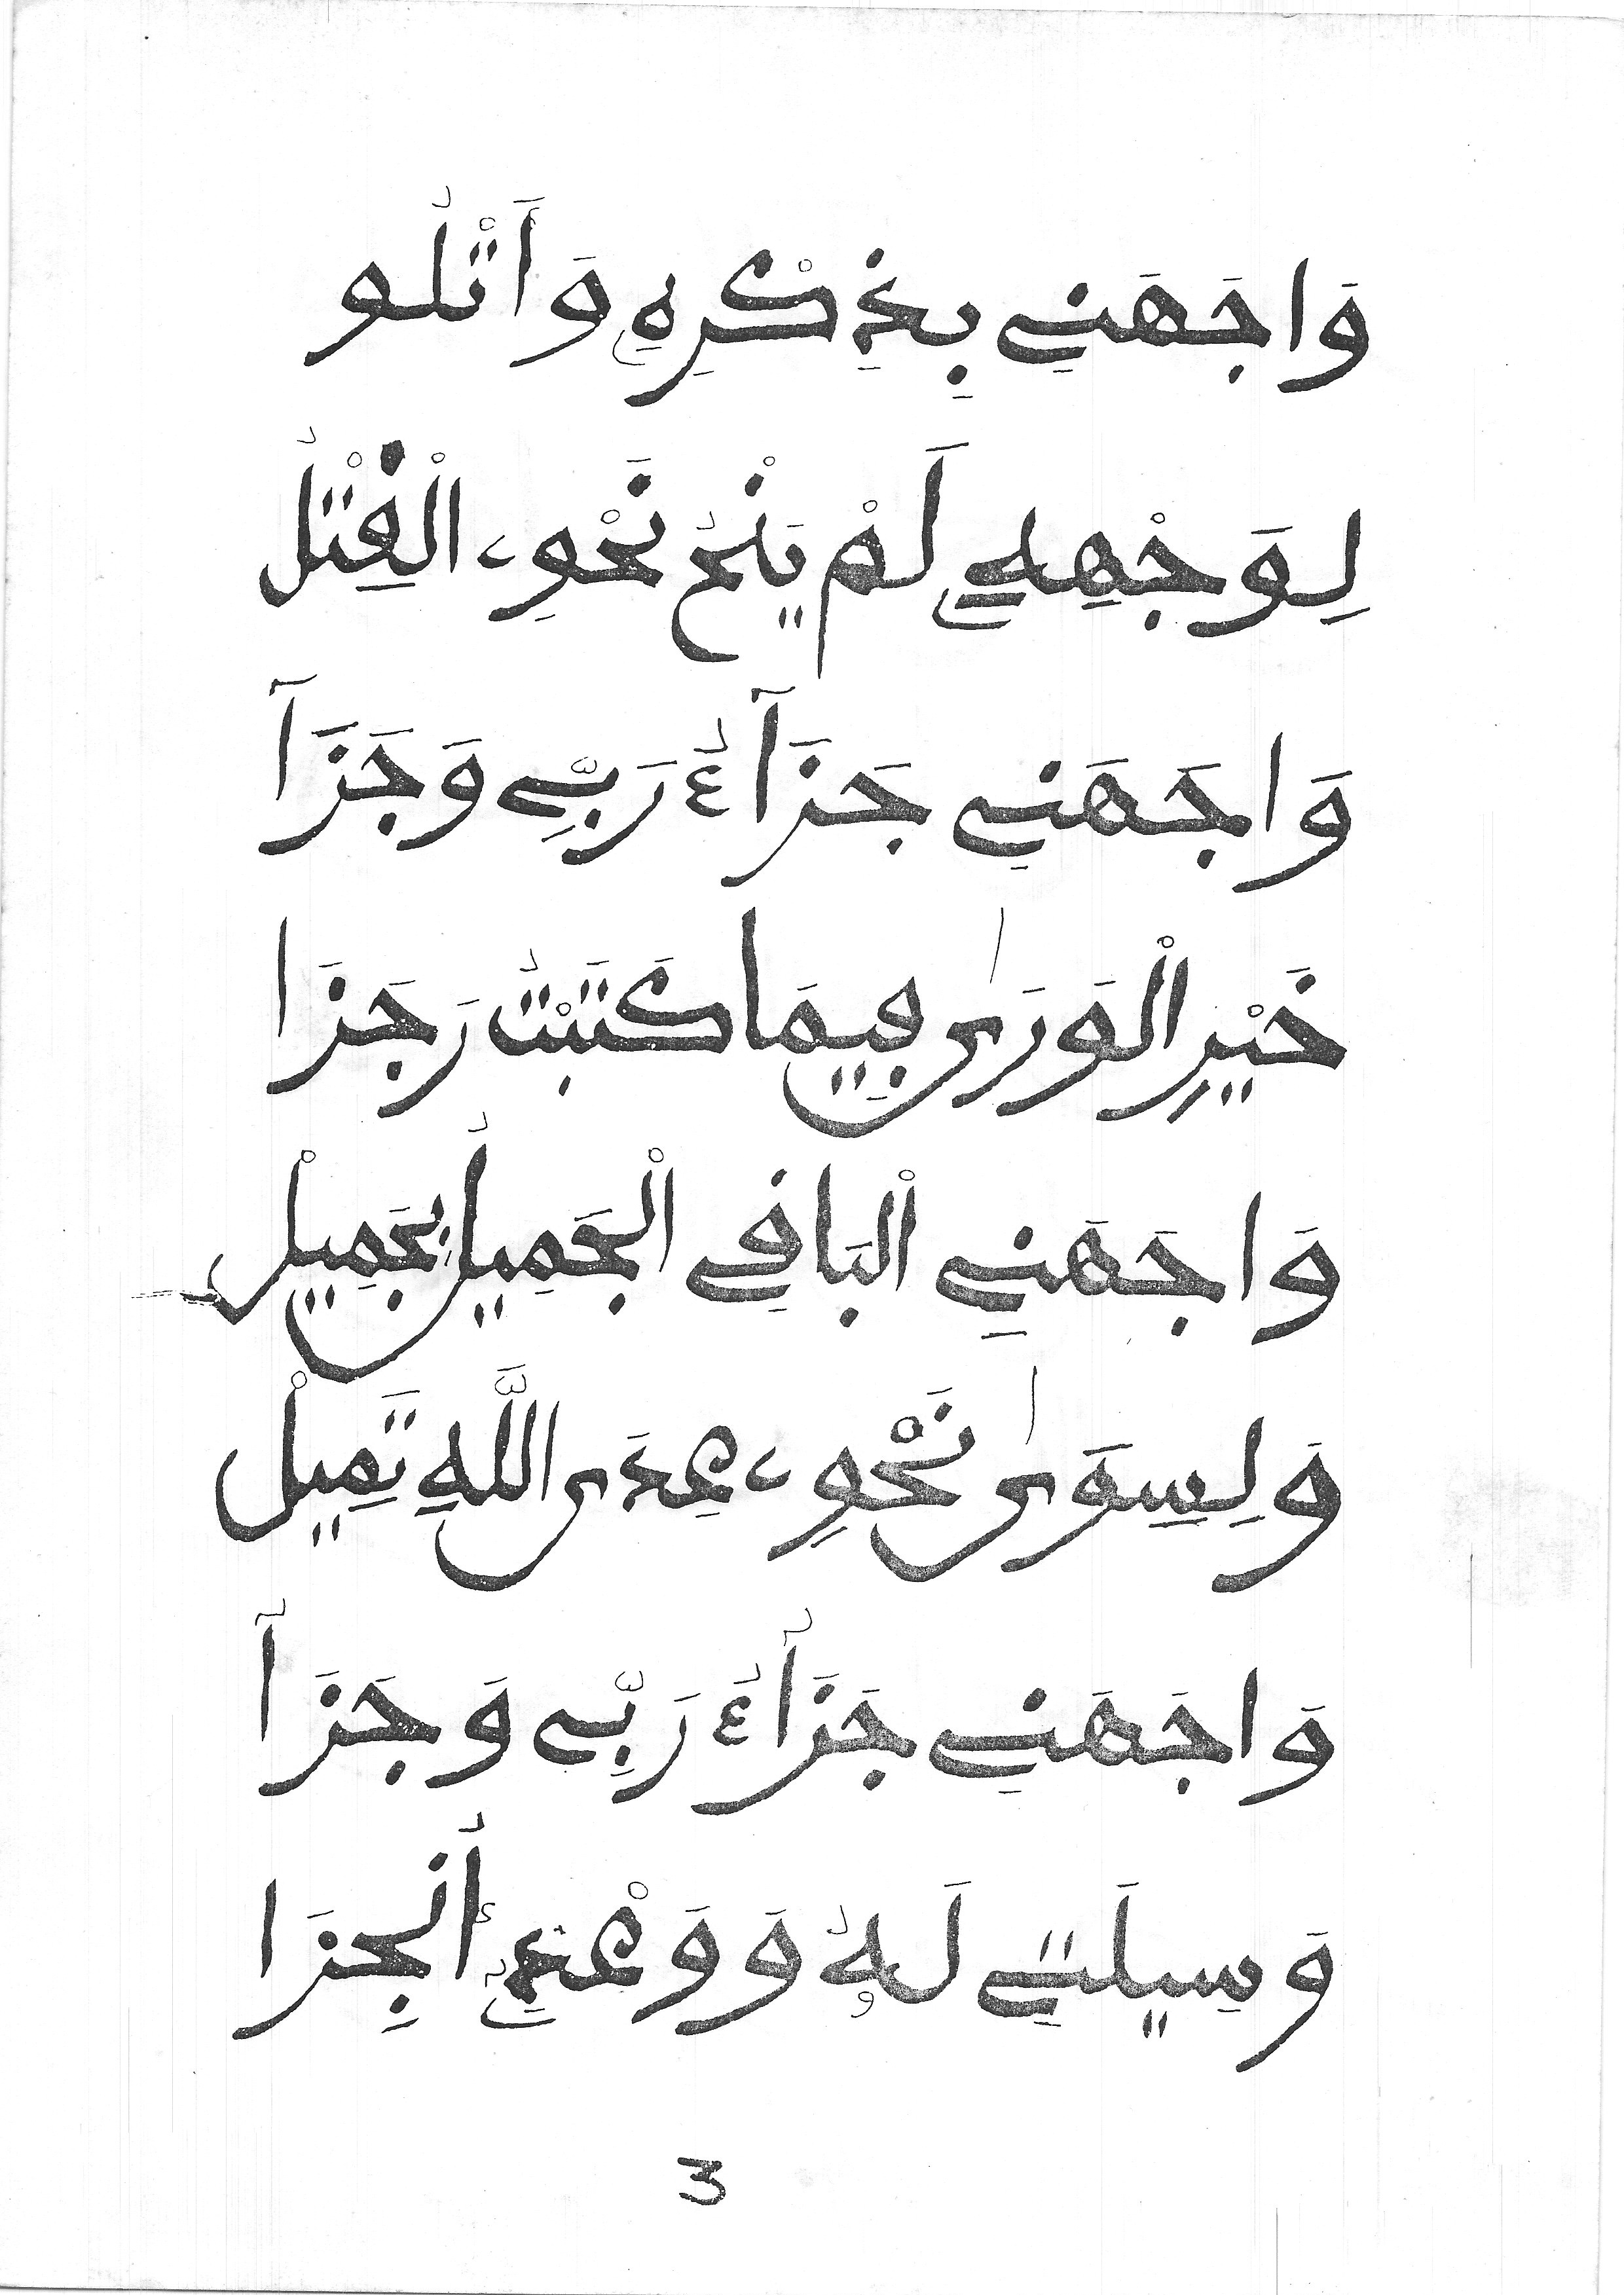 وَاجَهَنِي بِذِكْرِهِ وَأَتْلُو
لِوَجْهِهِ لَمْ يَنْحُ نَحْوِي الْقَتْلُ
وَاجَهَنِي جَزَآءُ رَبِّي وَجَزَآ
خَيْرِ الْوَرَىٰ فِيمَا كَتَبْتُ رَجَزَا
وَاجَهَنِي الْبَاقِي الْجَمِيلُ بِجَمِيلْ
وَلِسِوَىٰ نَحْوِي عِدَى اللَّهِ تَمِيلْ
وَاجَهَنِي جَزَآءُ رَبِّي وَجَزَآ
وَسِيلَتِي لَهُ وَوَعْدِهِ أُنْجِزَا
3